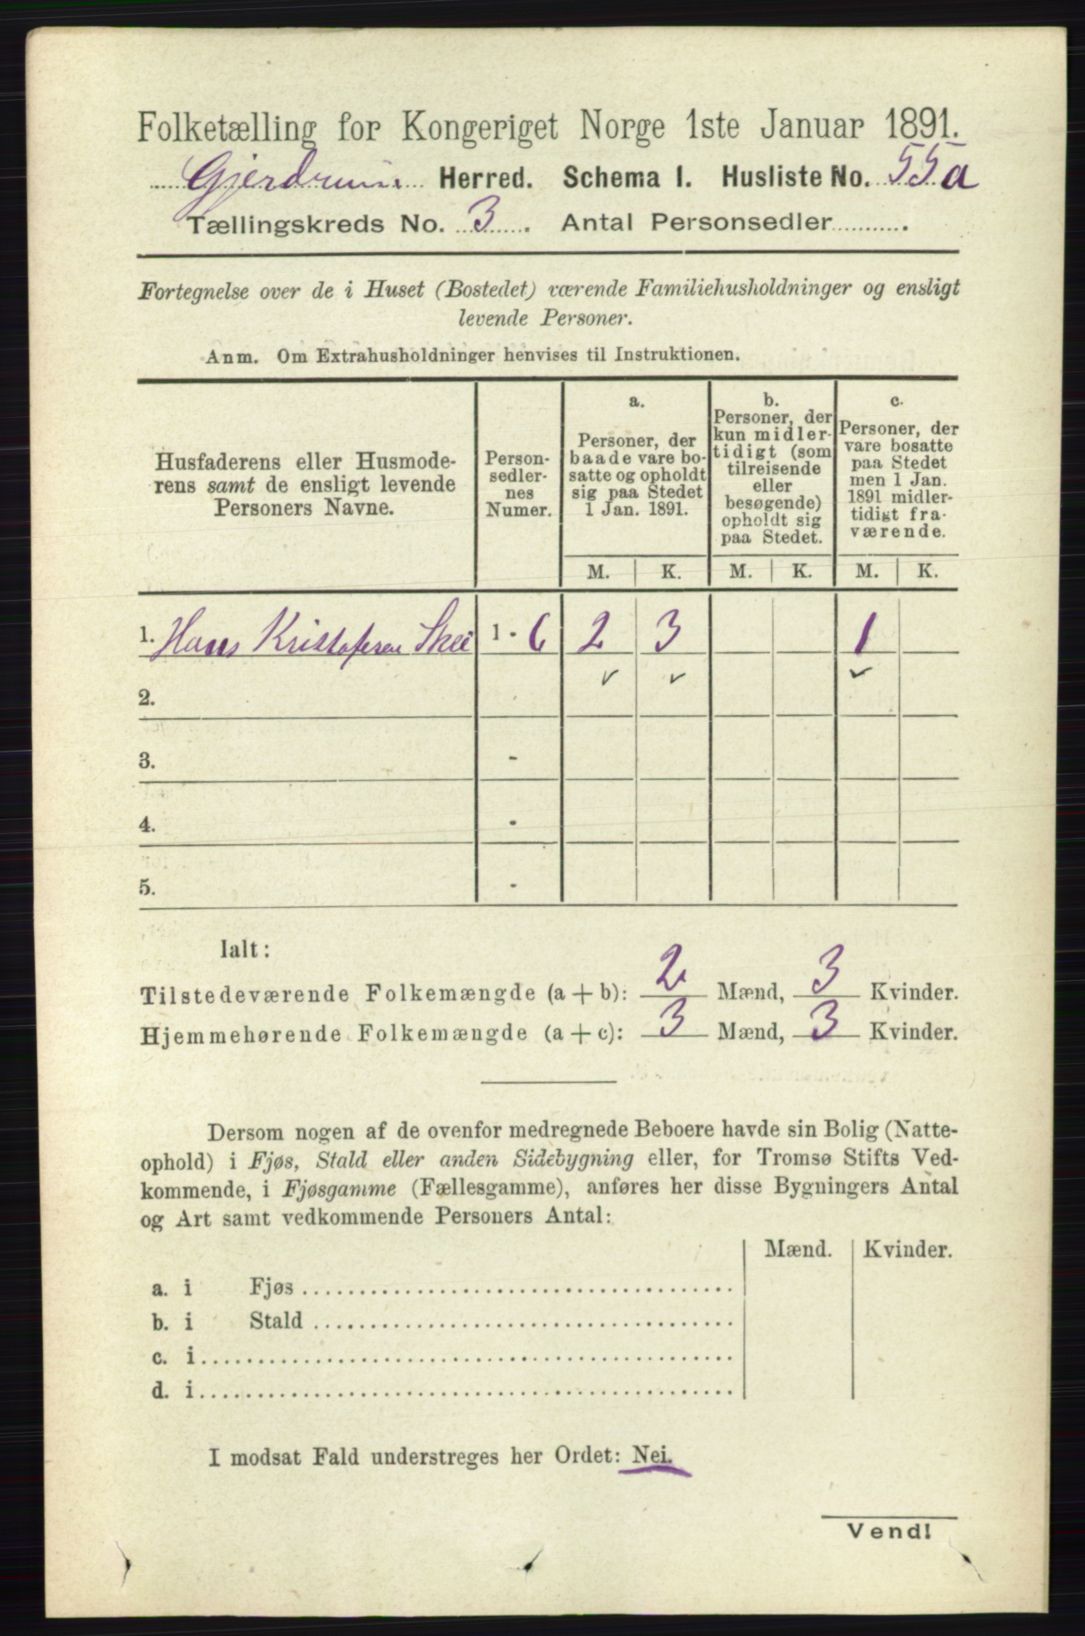 Folketælling for Kongeriget Norge 1ste Januar 1891.
Gjerdrum Herred. Schema I. Husliste No. 55a
Tællingskreds No. 3. Antal Personsedler..........
Fortegnelse over de i Huset (Bostedet) værende Familiehusholdninger og ensligt
levende Personer.
Anm. Om Extrahusholdninger henvises til Instruktionen.
Husfaderens eller Husmode-
rens samt de ensligt levende
Personers Navne.
Person-
sedler-
nes
Numer.
a.
Personer, der
baade vare bo-
satte og opholdt
sig paa Stedet
1 Jan. 1891.
b.
Personer, der
kun midler-
tidigt (som
tilreisende
eller
besøgende)
opholdt sig
paa Stedet.
c.
Personer, der
vare bosatte
paa Stedet
men 1 Jan.
1891 midler-
tidigt fra-
værende.
M. K. M. K. M. K.
1. Hans Kristofersen Skei 1 - 6 2 3 1
2.
3. -
4. -
5. -
Ialt:
Tilstedeværende Folkemængde (a + b): 2 Mænd, 3 Kvinder.
Hjemmehørende Folkemængde (a + c): 3 Mænd, 3 Kvinder.
Dersom nogen af de ovenfor medregnede Beboere havde sin Bolig (Natte-
ophold) i Fjøs, Stald eller anden Sidebygning eller, for Tromsø Stifts Ved-
kommende, i Fjøsgamme (Fællesgamme), anføres her disse Bygningers Antal
og Art samt vedkommende Personers Antal:
Mænd. Kvinder.
a. i Fjøs
b. i Stald
c. i
d. i
I modsat Fald understreges her Ordet: Nei.
Vend!